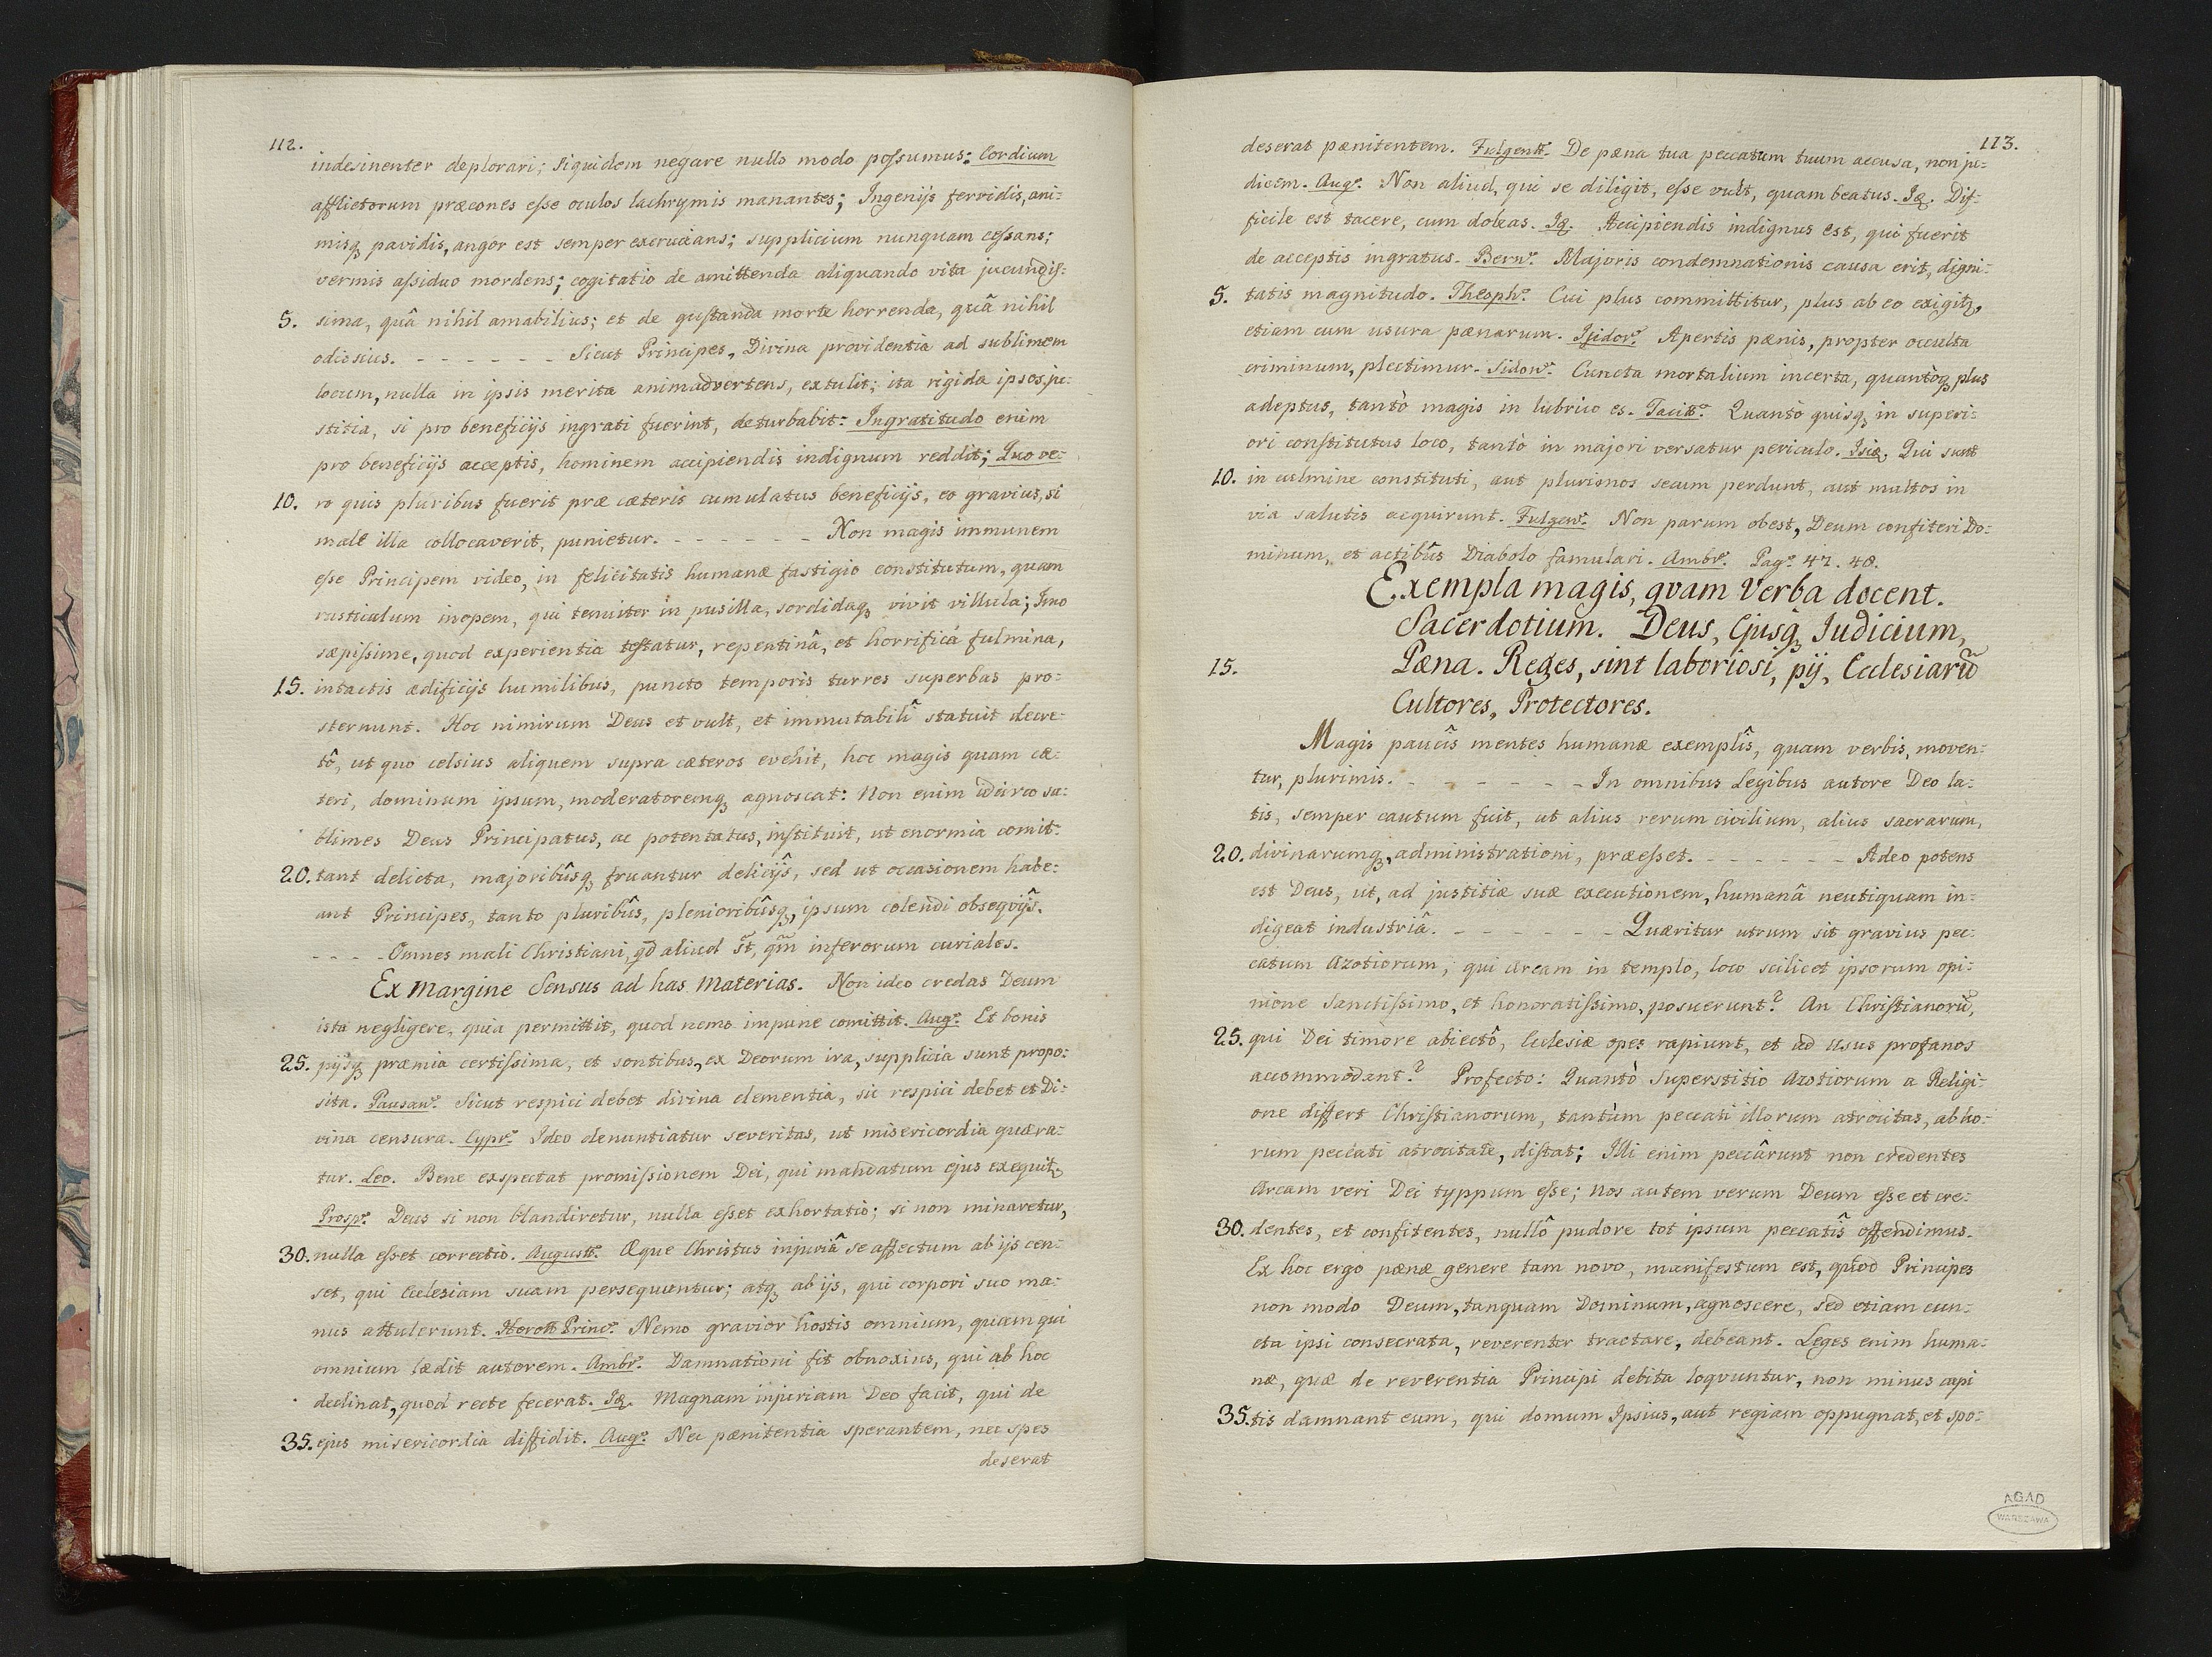 112.
indesinenter deplorari; siquidem negare nullo modo possumus: Cordium
afflictorum præcones esse oculos lachrymis manantes; Ingenijs fervidis, ani:
misq, pavidis, angor est semper excrucians; supplicium nunquam cessans;
vermis assiduo mordens; cogitatio de amittenda aliquando vita jucundis:
5. sima, quâ nihil amabilius; et de gustanda morte horrenda, quâ nihil
odiosius. - - - - - - Sicut Principes, Divina providentia ad sublimem
locum, nulla in ipsis merita animadvertens, extulit; ita rigida ipsos ju:
stitia, si pro beneficijs ingrati fuerint, deturbabit: Ingratitudo enim
pro beneficijs acceptis, hominem accipiendis indignum reddit; Quo ve:
10. ro quis pluribus fuerit præ cæteris cumulatus beneficijs, eo gravius, si
male illa collocaverit, punietur. - - - - - - Non magis immunem
esse Principem video, in felicitatis humanæ fastigio constitutum, quam
rusticulum inopem, qui tenuiter in pusilla, sordidaq, vivit villula; Imo
sæpissime, quod experientia testatur, repentinâ, et horrificâ fulmina,
15. intactis ædificijs humilibus, puncto temporis turres superbas pro:
sternunt. Hoc nimirum Deus et vult, et immutabilî statuit decre:
tô, ut quo celsius aliquem supra cæteros evehit, hoc magis quam cæ:
teri, dominum ipsum, moderatoremq, agnoscat: Non enim idcirco su:
blimes Deus Principatus, ac potentatus, instituit, ut enormia comit:
20. tant delicta, majoribûsq, fruantur delicijs, sed ut occasionem habe:
ant Principes, tanto pluribûs, plenioribûsq, ipsum colendi obseqvijs.
- - - - Omnes mali Christiani, qd aliud st, qm inferorum curiales.
Ex Margine Sensus ad has Materias. Non ideo credas Deum
ista negligere, quia permittit, quod nemo impune comittit. Augs. Et bonis
25. pijsq, præmia certissima, et sontibus, ex Deorum ira, supplicia sunt propo:
sita. Pausan. Sicut respici debet divina clementia, sic respici debet et Di:
vina censura. Cypr. Ideo denuntiatur severitas, ut misericordia quæra:
tur. Leo. Bene exspectat promissionem Dei, qui mandatum ejus exequit,
Prosp. Deus si non blandiretur, nulla esset exhortatio; si non minaretur,
30. nulla esset correctio. August. Æque Christus injuriâ se affectum ab ijs cen:
set, qui Ecclesiam suam persequuntur; atq, ab ijs, qui corpori suo ma:
nus attulerunt. Nemo gravior hostis omnium, quam qui
omnium lædit autorem. Ambr. Damnationi fit obnoxius, qui ab hoc
declinat, quod recte fecerat. Id. Magnam injuriam Deo facit, qui de
35. ejus misericordia diffidit. Aug. Nec pænitentia sperantem, nec spes
deserat
113.
deserat pænitentem. Fulgent. De pæna tua peccatum tuum accusa, non ju:
dicem. Aug. Non aliud, qui se diligit, esse vult, quam beatus. Id. Dif:
ficile est tacere, cum doleas. Id. Accipiendis indignus est, qui fuerit
de acceptis ingratus. Bern. Majoris condemnationis causa erit, digni:
5. tatis magnitudo. Theoph. Cui plus committitur, plus ab eo exigit,
etiam cum usura pænarum. Isidor. Apertis pænis, propter occulta
criminum, plectimur. Sidon. Cuncta mortalium incerta, quantòq, plus
adeptus, tantò magis in lubrico es. Tacit. Quantò quisq, in superi:
ori constitutus loco, tantò in majori versatur periculo. Qui sunt
10. in culmine constituti, aut plurimos secum perdunt, aut multos in
via salutis acquirunt. Fulgen. Non parum obest, Deum confiteri Do:
minum, et actibûs Diabolo famulari. Ambr. Pag. 47. 48.
Exempla magis, qvam Verba docent.
Sacerdotium. Deus, Ejusq, Judicium,
15. Pæna. Reges, sint laboriosi, pij, Ecclesiarũ
Cultores, Protectores.
Magis paucîs mentes humanæ exemplîs, quam verbis, moven:
tur, plurimis. - - - - - - In omnibus Legibus autore Deo la:
tis, semper cautum fuit, ut alius rerum civilium, alius sacrarum,
20. divinarumq, administrationi, præesset. - - - - - - Adeo potens
est Deus, ut, ad justitiæ suæ executionem, humanâ neutiquam in:
digeat industriâ. - - - - - - Quæritur utrum sit gravius pec:
catum Azotiorum, qui Arcam in templo, loco scilicet ipsorum opi:
nione Sanctissimo, et honoratissimo, posuerunt? An Christianorũ,
25. qui Dei timore abiectô, Eclesiæ opes rapiunt, et ad usus profanos
accommodant? Profecto: Quantò Superstitio Azotiorum a Religi:
one differt Christianorum, tantùm peccati illorum atrocitas, ab ho:
rum peccati atrocitate, distat; Illi enim peccârunt non credentes
Arcam veri Dei typpum esse; nos autem verum Deum esse et cre:
30. dentes, et confitentes, nullô pudore tot ipsum peccatîs offendimus.
Ex hoc ergo pænæ genere tam novo, manifestum est, quod Principes
non modo Deum, tanquam Dominum, agnoscere, sed etiam cun:
cta ipsi consecrata, reverenter tractare, debeant. Leges enim huma:
næ, quæ de reverentia Principi debita loqvuntur, non minus capi
35. tis damnant eum, qui domum Ipsius, aut regiam oppugnat, et spo:
AGAD
WARSZAWA